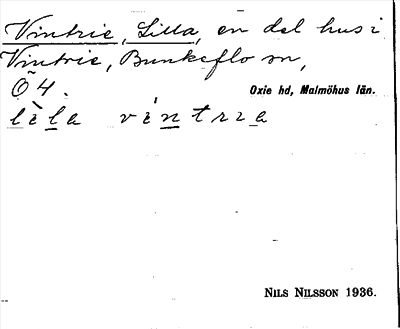 Vintrie, Lilla, en del hus i
Vintrie, Bunkeflo sn,
Ö 4.
Oxie hd, Malmöhus län.
lìla víntrıa
NILS NILSSON 1936.